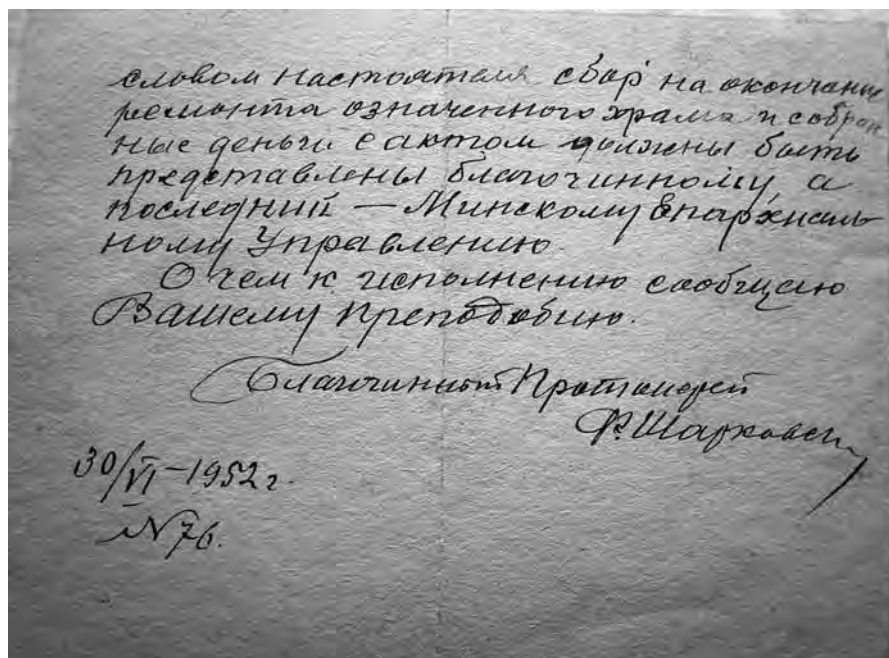 словом настоятеля сбор на окончание
ремонта означенного храма и собран
ные деньги с актом должны быть
представлены благочинному, а
последний — Минскому Епархиаль
ному Управлению.
О чем к исполнению сообщаю
Вашему Преподобию.
Благочинный Протоиерей
30/VI-1952 г.
№ 76.